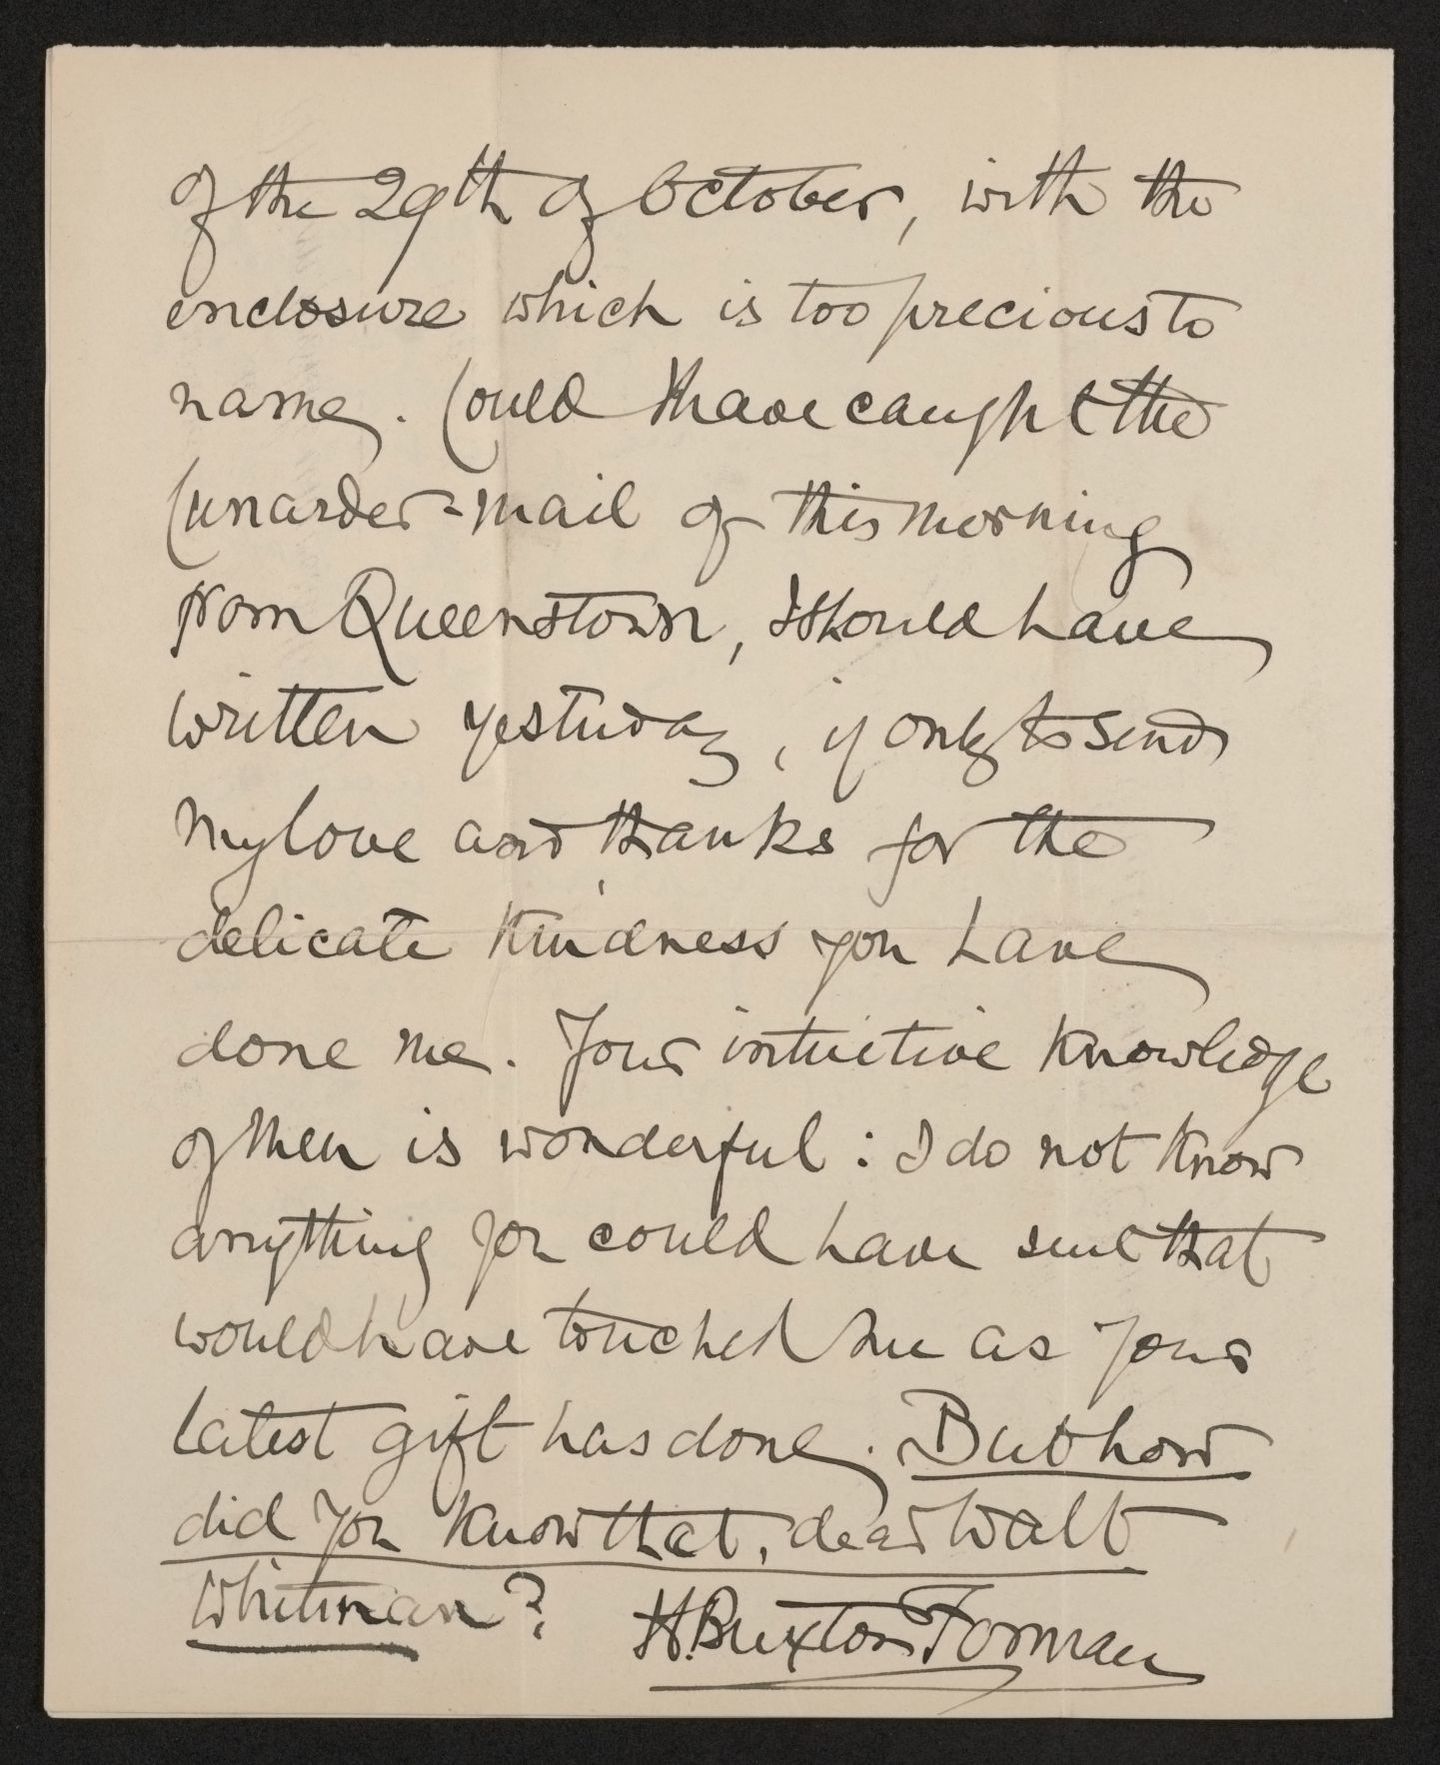 of the 29th of October, with the
enclosure which is too precious to
name. Could I have caught the
Cunarder-mail of this morning
from Queenstown, I should have
written yesterday, if only to send
my love and thanks for the
delicate kindness you have
done me. Your intuitive knowledge
of men is wonderful: I do not know
anything you could have sent that
would have touched me as your
latest gift has done. But how
did you know that, dear Walt
Whitman? H. Buxton Forman